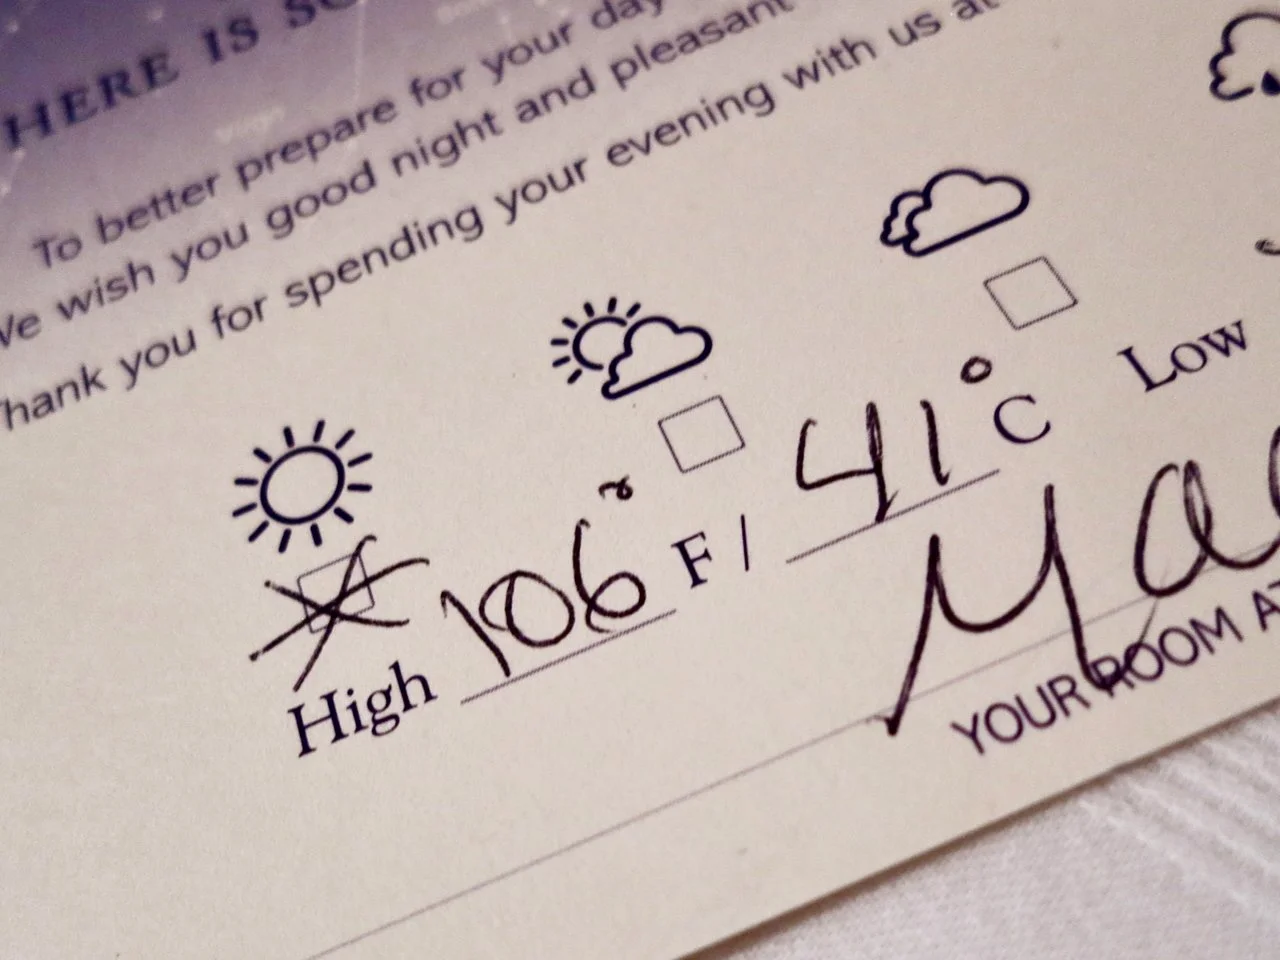 HERE IS
To better prepare for your day
We wish you good night and pleasant
Thank you for spending your evening with us at
High 106° F / 41°C Low
YOUR ROOM